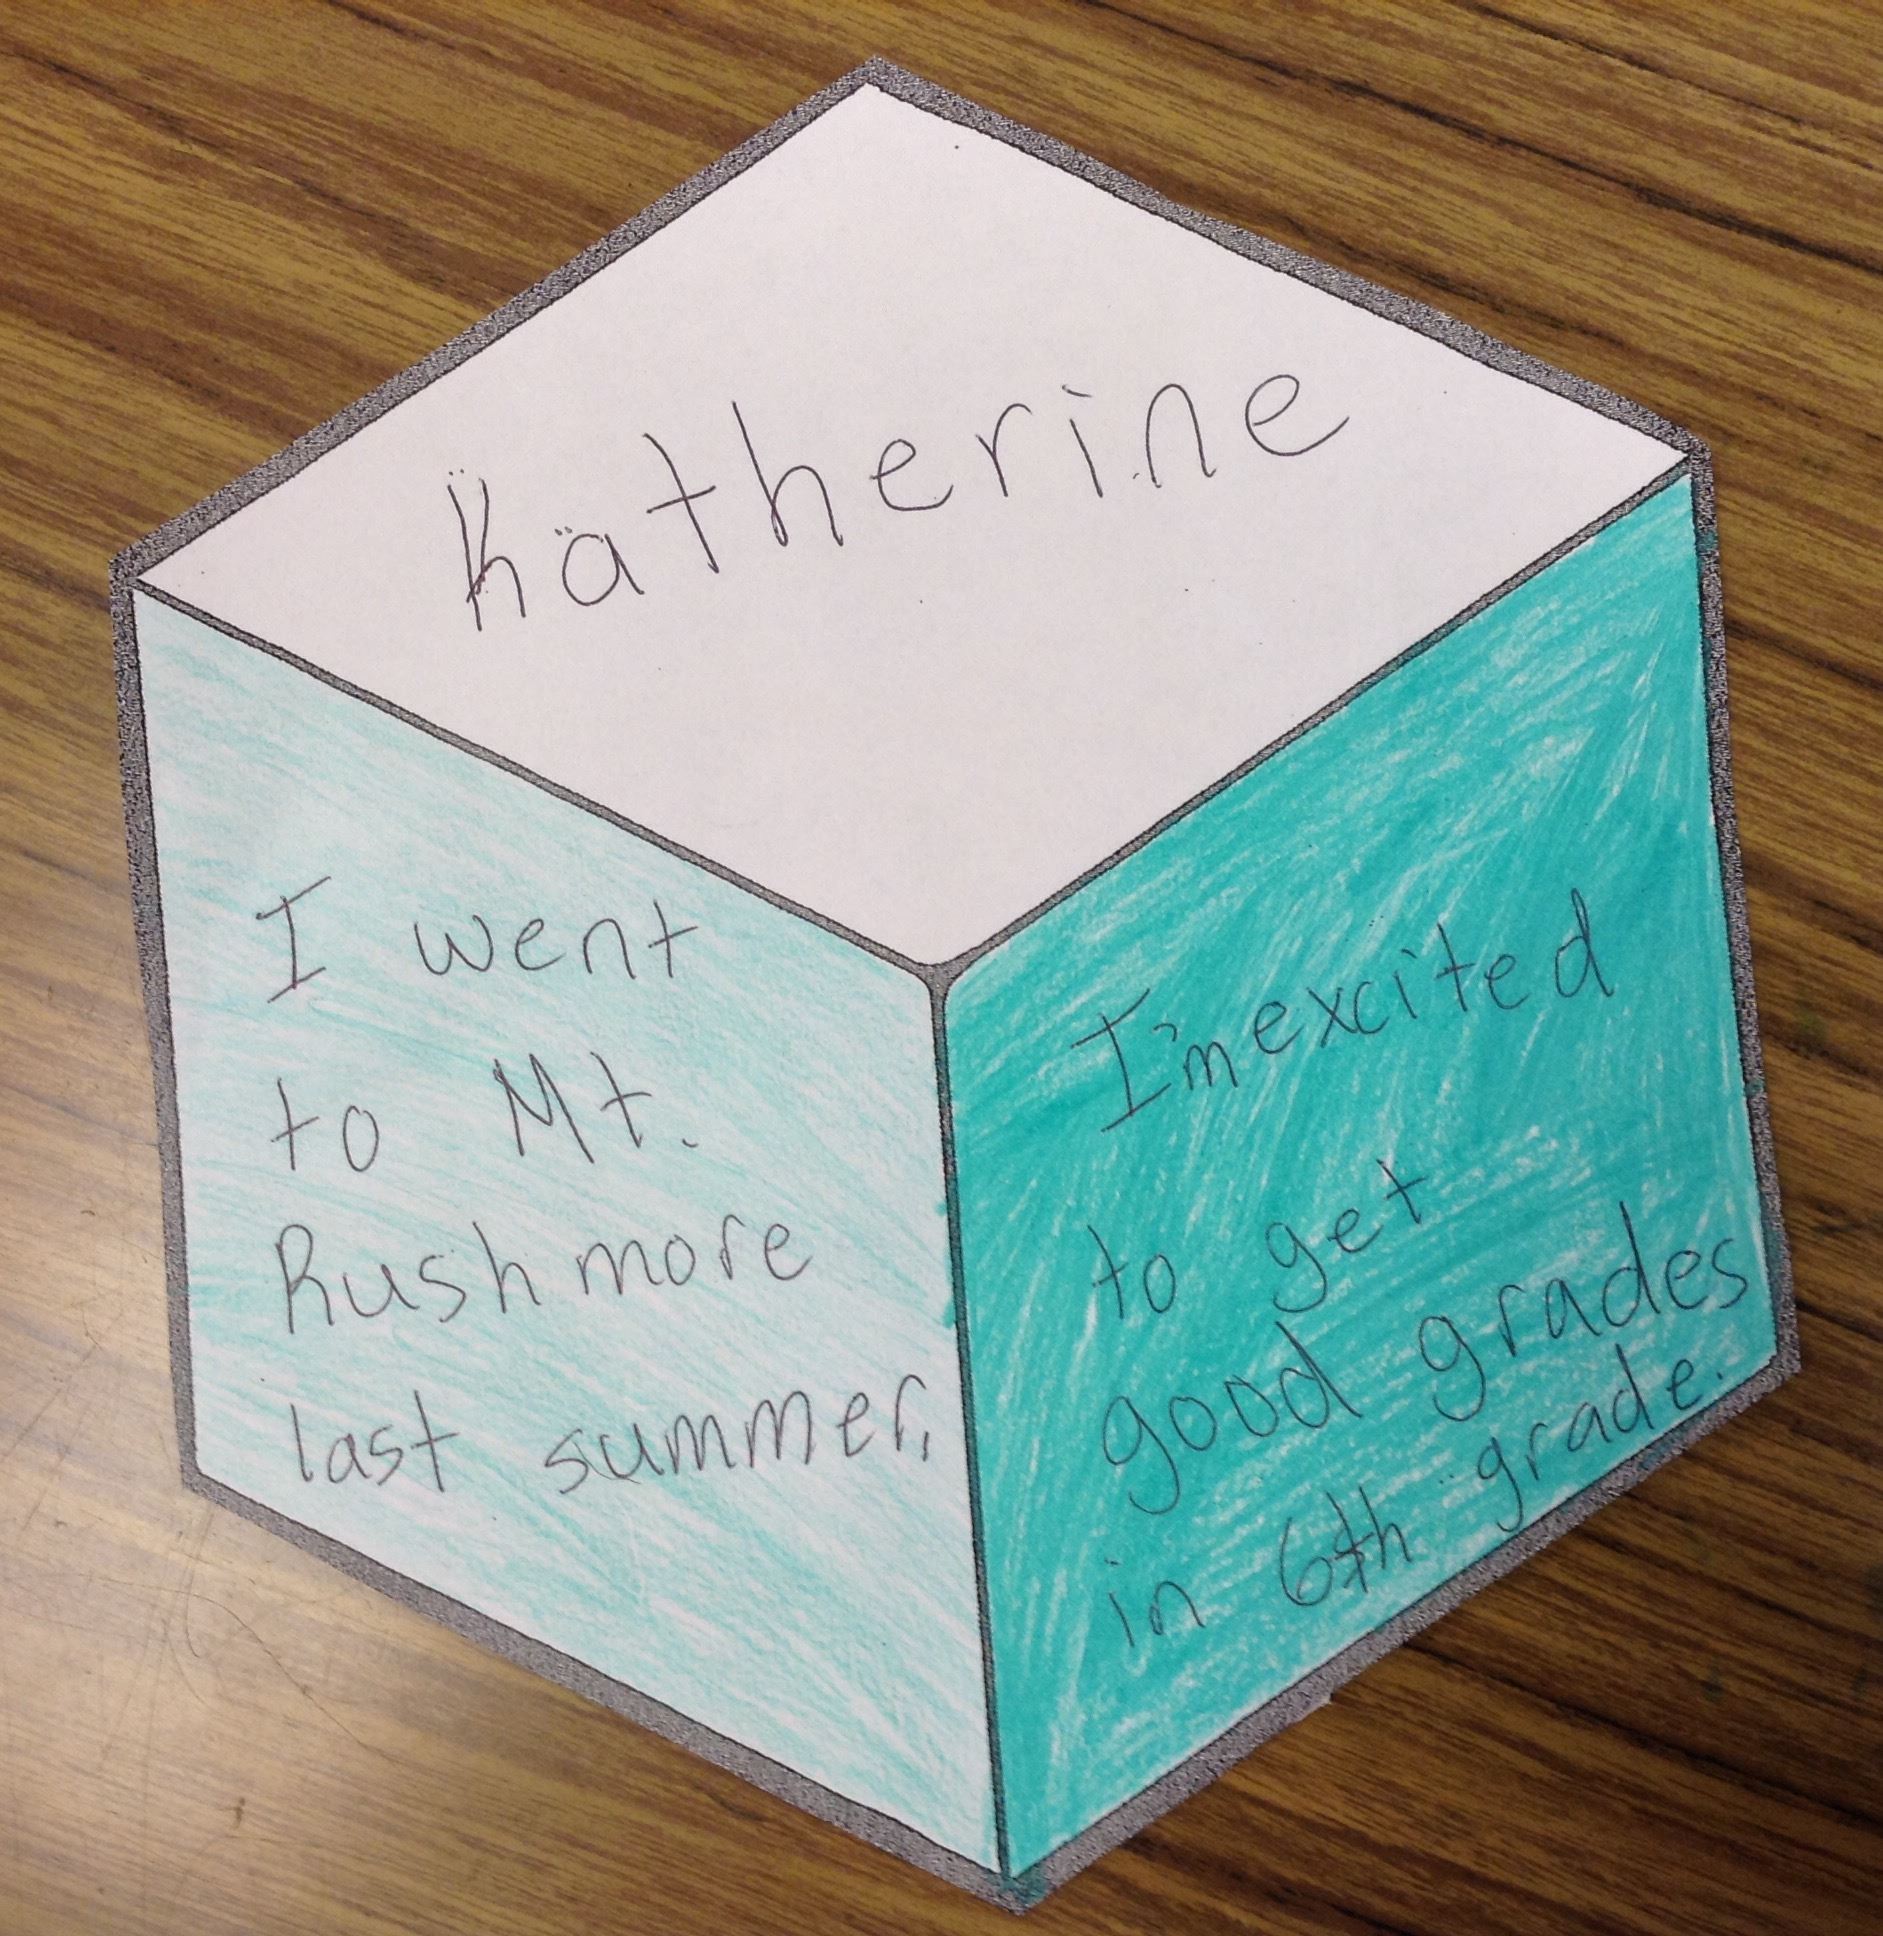 Katherine
I went
to Mt.
Rushmore
last summer.
I'm excited
to get
good grades
in 6th grade.